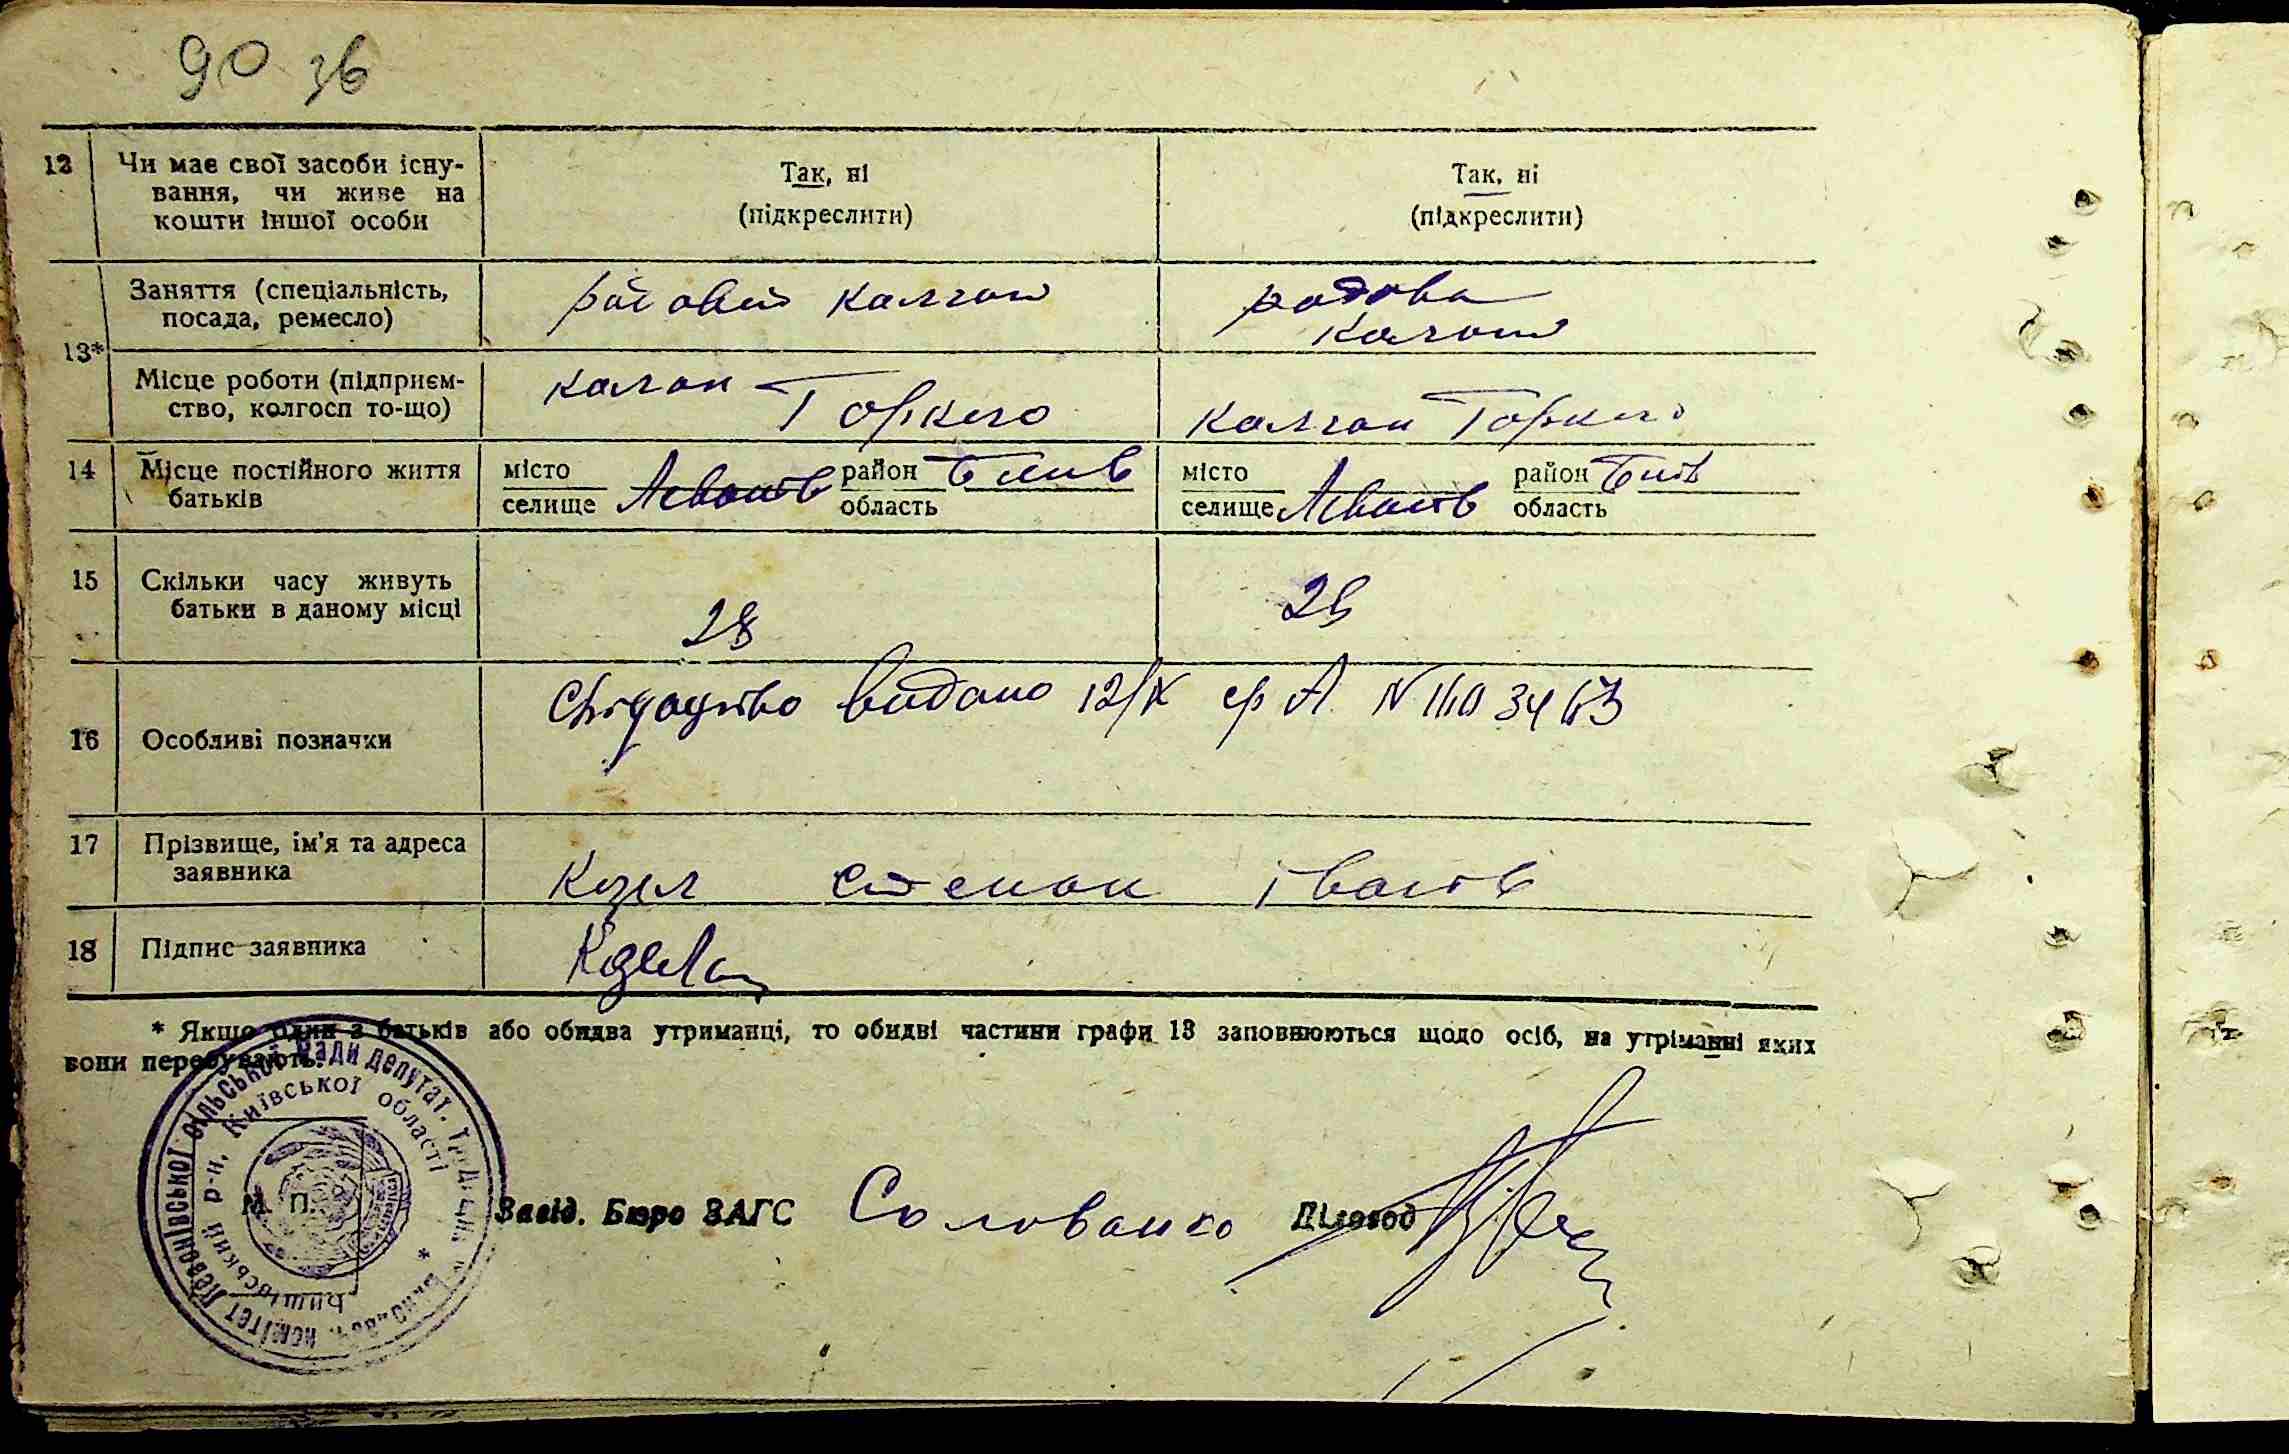 90 зв
12 Чи має свої засоби існу-
вання, чи живе на
кошти іншої особи
Так, ні
(підкреслити)
Так, ні
(підкреслити)
13*
Заняття (спеціальність,
посада, ремесло)
рядовий колгосп
рядова
колгосп
Місце роботи (підприєм-
ство, колгосп то-що)
колгосп Горкого
колгосп Горкого
14 Місце постійного життя
батьків
місто
селище
район
область
місто
селище
район
область
15 Скільки часу живуть
батьки в даному місці
28
28
16 Особливі позначки
Свідоцтво видано 12/IX ср А N
17 Прізвище, ім'я та адреса
заявника
Козел Степан Іванов
18 Підпис заявника
* Якщо один з батьків або обидва утриманці, то обидві частини графи 13 заповнюються щодо осіб, на утріманні яких
вони перебувають.
сільської Ради депутат.
Київської області
М. П.
Завід. Бюро ЗАГС Діловод